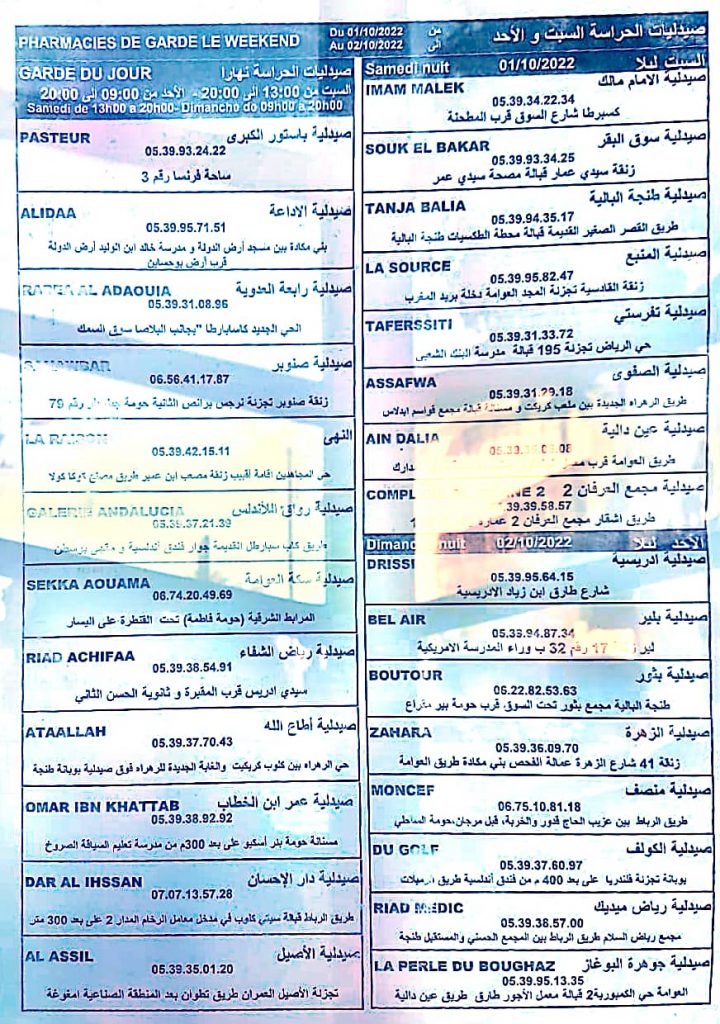 PHARMACIES DE GARDE LE WEEKEND
Du 01/10/2022 من
Au 02/10/2022 الى
صيدليات الحراسة السبت و الأحد
GARDE DU JOUR صيدليات الحراسة نهارا
السبت من 13:00 الى 20:00 - الأحد من 09:00 الى 20:00
Samedi de 13h00 a 20h00- Dimanche de 09h00 a 20h00
PASTEUR صيدلية باستور الكبرى
05.39.93.24.22
ساحة فرنسا رقم 3
ALIDAA صيدلية الاداعة
05.39.95.71.51
بني مكادة بين مسجد أرض الدولة و مدرسة خالد ابن الوليد أرض الدولة
قرب أرض بوحساين
RABEA AL ADAOUIA صيدلية رابعة العدوية
05.39.31.08.96
الحي الجديد كاسابارطا "بجانب البلاصا سوق السمك
صيدلية صنوبر
06.56.41.17.87
زنقة صنوبر تجزئة نرجس برانص الثانية حومة رقم 79
LA RAISON النهى
05.39.42.15.11
حي المجاهدين اقامة زنقة مصعب ابن عمير طريق مصنع كوكا كولا
GALERIE ANDALUCIA صيدلية رواق للأندلس
05.39.37.21.39
طريق كاب سبارطل القديمة جوار فندق أندلسية و
SEKKA AOUAMA صيدلية سكة العوامة
06.74.20.49.69
المرابط الشرقية (حومة فاطمة) تحت القنطرة على اليسار
RIAD ACHIFAA صيدلية رياض الشفاء
05.39.38.54.91
سيدي ادريس قرب المقبرة و ثانوية الحسن الثاني
ATAALLAH صيدلية أطاع الله
05.39.37.70.43
حي الرهراه بين كلوب كريكيت والغابة الجديدة للرهراه فوق صيدلية بوبانة طنجة
OMAR IBN KHATTAB صيدلية عمر ابن الخطاب
05.39.38.92.92
مسنانة حومة بلر أسكيو على بعد 300م من مدرسة تعليم السياقة الصروخ
DAR AL IHSSAN صيدلية دار الإحسان
07.07.13.57.28
طريق الرباط قبالة سيتي كلوب في مدخل معامل الرخام المدار 2 على بعد 300 متر
AL ASSIL صيدلية الأصيل
05.39.35.01.20
تجزئة الأصيل العمران طريق تطوان بعد المنطقة الصناعية امغوغة
Samedi nuit 01/10/2022 السبت ليلا
IMAM MALEK صيدلية الامام مالك
05.39.34.22.34
كسبرطا شارع السوق قرب المطحنة
SOUK EL BAKAR صيدلية سوق البقر
05.39.93.34.25
زنقة سيدي عمار قبالة مصحة سيدي عمر
TANJA BALIA صيدلية طنجة البالية
05.39.94.35.17
طريق القصر الصغير القديمة قبالة محطة الطكسيات طنجة البالية
LA SOURCE صيدلية المنبع
05.39.95.82.47
زنقة القادسية تجزئة المجد العوامة دخلة بريد المغرب
TAFERSSITI صيدلية تفرستي
05.39.31.33.72
حي الرياض تجزئة 195 قبالة مدرسة البنك الشعبي
ASSAFWA صيدلية الصفوى
05.39.31.29.18
طريق الرهراه الجديدة بين ملعب كريكت و مسنانة قبالة مجمع قواسم ايدلاس
AIN DALIA صيدلية عين دالية
طريق العوامة قرب
صيدلية مجمع العرفان 2
39.39.58.57
طريق اشقار مجمع العرفان 2 عمارة
Dimanche nuit 02/10/2022 الأحد ليلا
DRISSI صيدلية ادريسية
05.39.95.64.15
شارع طارق ابن زياد الادريسية
BEL AIR صيدلية بلير
05.39.94.87.34
17 رقم 32 ب وراء المدرسة الامريكية
BOUTOUR صيدلية بثور
06.22.82.53.63
طنجة البالية مجمع بثور تحت السوق قرب حومة بير
ZAHARA صيدلية الزهرة
05.39.36.09.70
زنقة 41 شارع الزهرة عمالة الفحص بني مكادة طريق العوامة
MONCEF صيدلية منصف
06.75.10.81.18
طريق الرباط بين عزيب الحاج قدور والخربة، قبل مرجان،حومة الساحلي
DU GOLF صيدلية الكولف
05.39.37.60.97
بوبانة تجزئة فلندريا على بعد 400 م من فندق أندلسية طريق الرميلات
RIAD MEDIC صيدلية رياض ميديك
05.39.38.57.00
مجمع رياض السلام طريق الرباط بين المجمع الحسني والمستقبل طنجة
LA PERLE DU BOUGHAZ صيدلية جوهرة البوغاز
05.39.95.13.35
العوامة حي الكمبورية2 قبالة معمل الأجور طارق طريق عين دالية